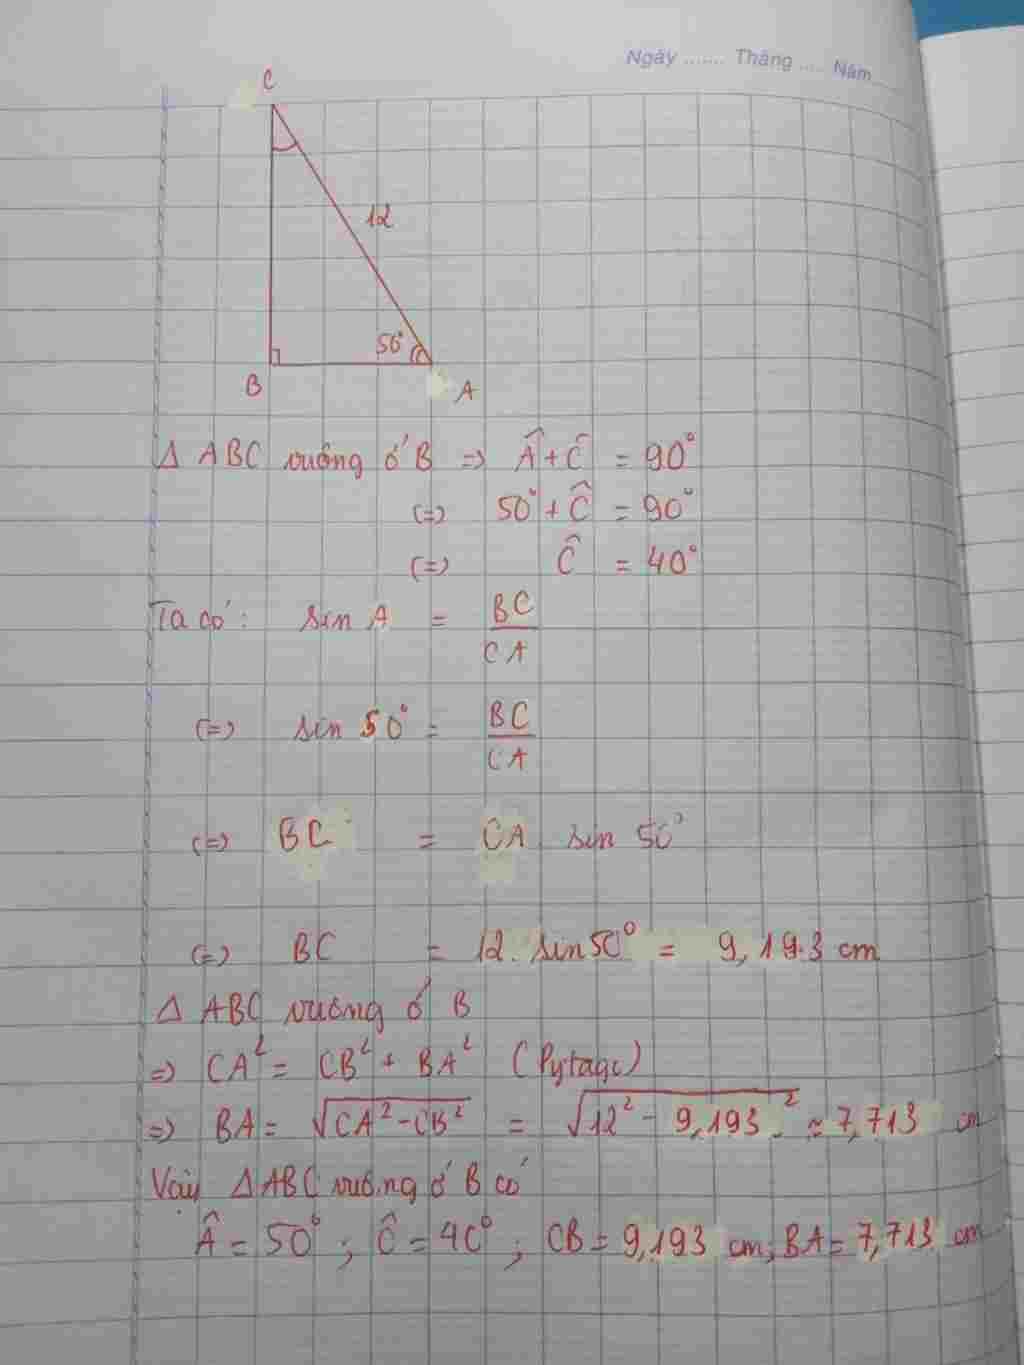 Ngày ....... Tháng .... Năm
C
12
50°
B
A
Δ ABC vuông ở B => Â + Ĉ = 90°
(=) 50° + Ĉ = 90°
(=) Ĉ = 40°
Ta có: sin A = BC/CA
(=) sin 50° = BC/CA
(=) BC = CA sin 50°
(=) BC = 12. sin 50° = 9,193 cm
Δ ABC vuông ở B
=> CA² = CB² + BA² (Pytago)
=> BA = √(CA² - CB²) = √(12² - 9,193²) ≈ 7,713 cm
Vậy Δ ABC vuông ở B có
Â = 50° ; Ĉ = 40° ; CB = 9,193 cm; BA = 7,713 cm